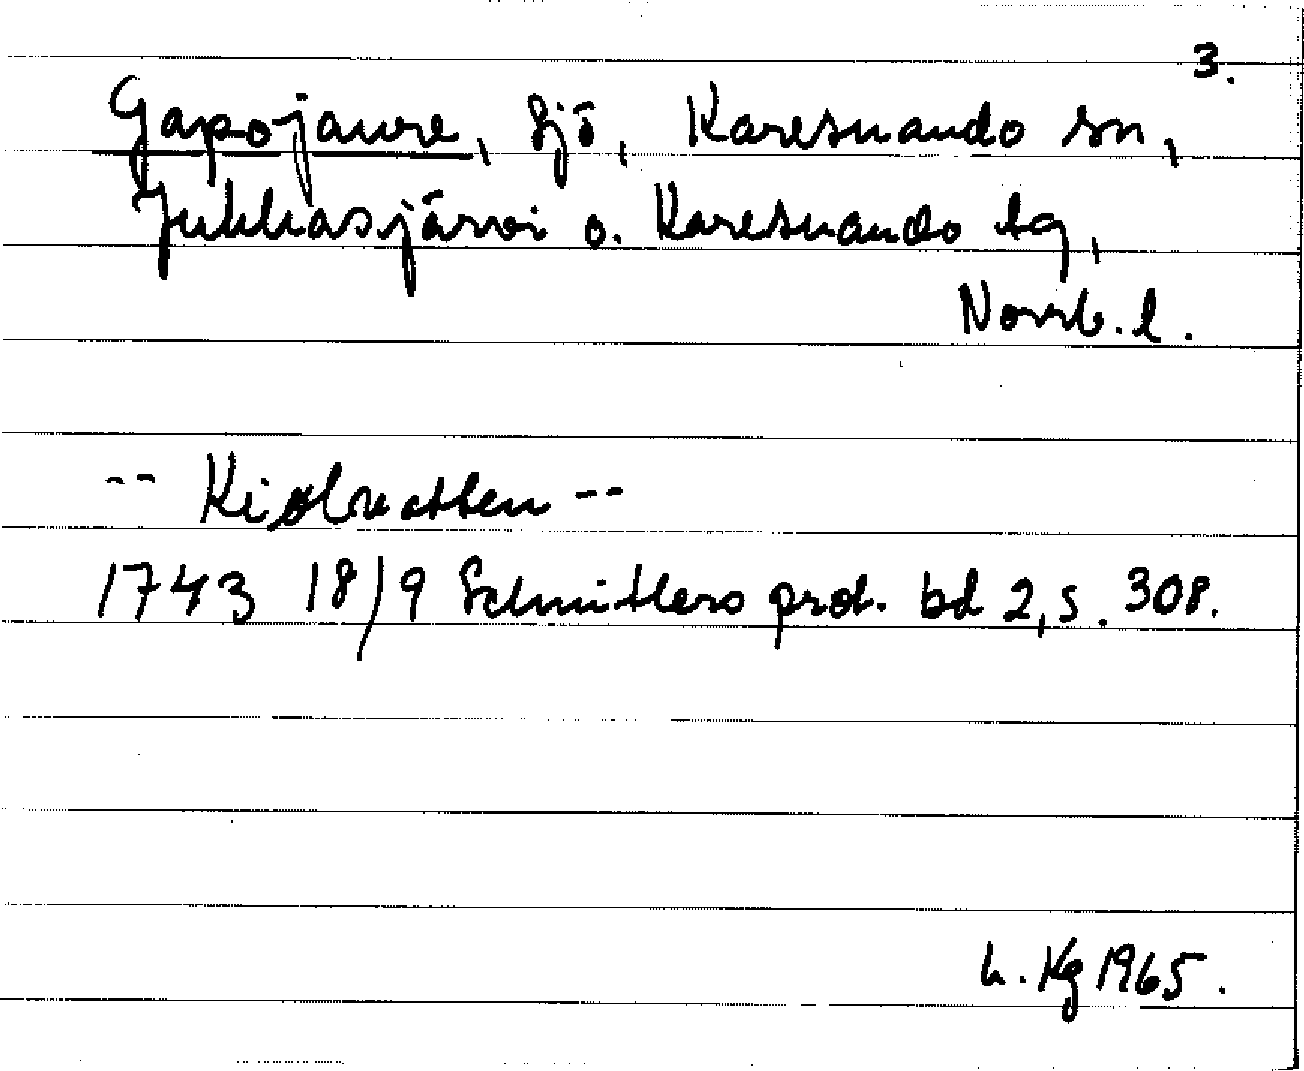 3.
Gapojaure, sjö, Karesuando sn,
Jukkasjärvi o. Karesuando tg,
Norrb. l.
-- Kiølvatten --
1743 18/9 Schnitlers prot. bd 2, s. 308.
L. Kg 1965.